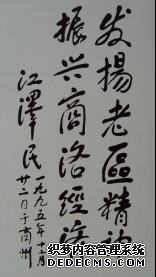 发揚老區精神
振兴商洛經济
江泽民
一九九五年十月
廿二日于商州
织梦内容管理系统
DEDECMS.COM